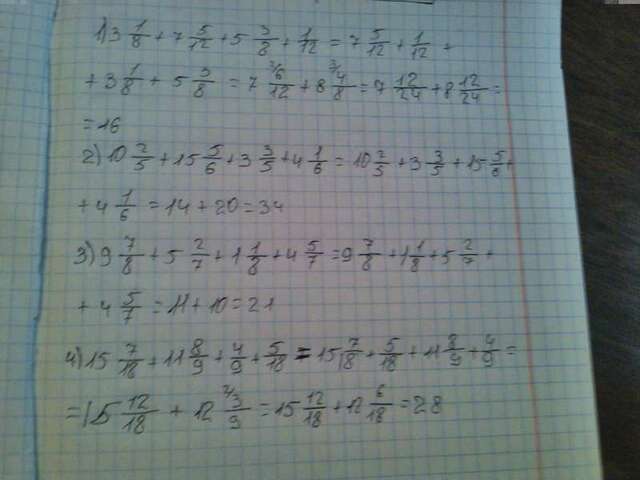 1) 3 1/8 + 7 5/12 + 5 3/8 + 1/12 = 7 5/12 + 1/12 +
+ 3 1/8 + 5 3/8 = 7 6/12 + 8 4/8 = 7 12/24 + 8 12/24 =
= 16
2) 10 2/5 + 15 5/6 + 3 3/5 + 4 1/6 = 10 2/5 + 3 3/5 + 15 5/6 +
+ 4 1/6 = 14 + 20 = 34
3) 9 7/8 + 5 2/7 + 1 1/8 + 4 5/7 = 9 7/8 + 1 1/8 + 5 2/7 +
+ 4 5/7 = 11 + 10 = 21
4) 15 7/18 + 11 8/9 + 4/9 + 5/18 = 15 7/18 + 5/18 + 11 8/9 + 4/9 =
= 15 12/18 + 12 3/9 = 15 12/18 + 12 6/18 = 28